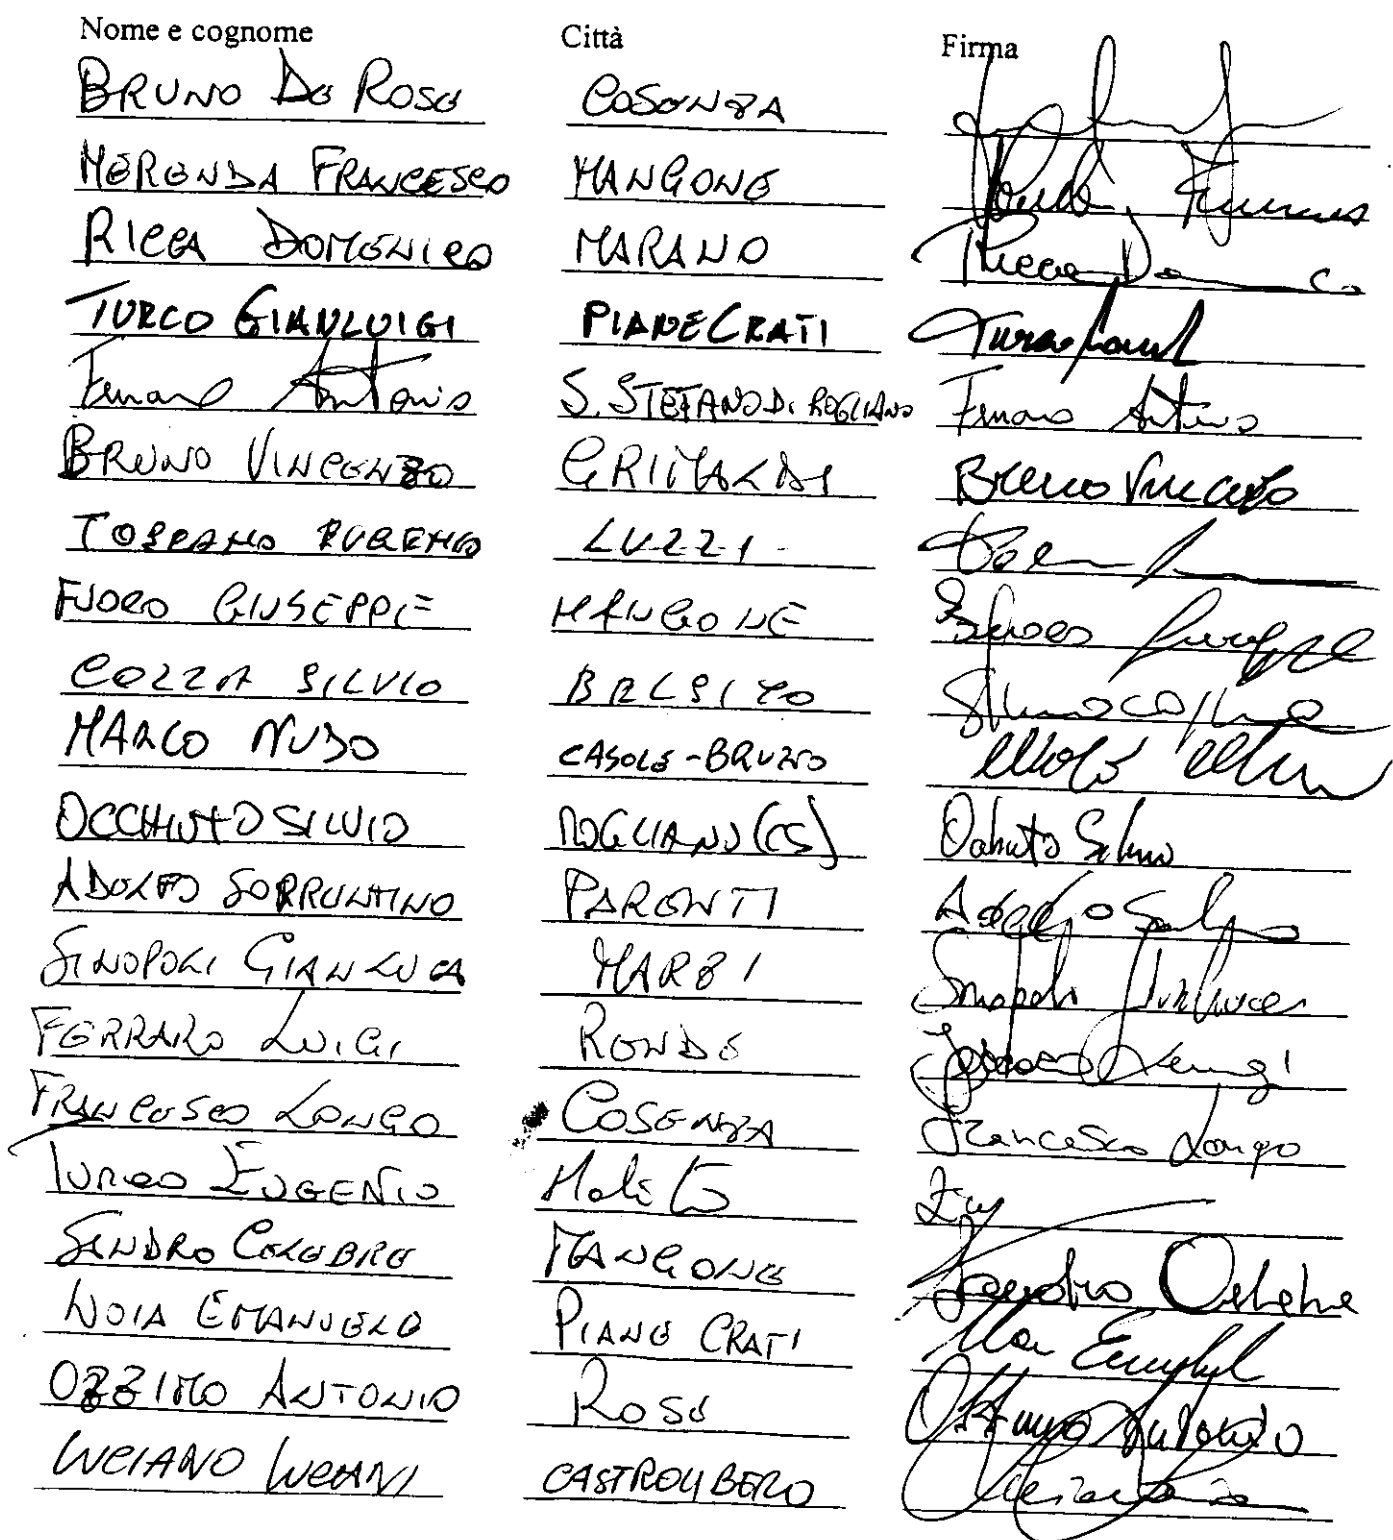 Nome e cognome Città Firma
BRUNO DE ROSE COSENZA
MERENDA FRANCESCO MANGONE
RICCA DOMENICO MARANO Ricca Domenico
TURCO GIANLUIGI PIANE CRATI Turco
Antonio S. STEFANO DI ROGLIANO
BRUNO VINCENZO GRIMALDI Bruno Vincenzo
TOSCANO EUGENIO LUZZI
FUOCO GIUSEPPE MANGONE Fuoco Giuseppe
COZZA SILVIO BELSITO Silvio Cozza
MARCO NUDO CASOLE-BRUZIO
OCCHIUTO SILVIO ROGLIANO (CS) Occhiuto Silvio
ADOLFO SORRENTINO PARENTI Adolfo
SINOPOLI GIANLUCA MARZI Sinopoli Gianluca
FERRARO LUIGI RENDE Ferraro Luigi
FRANCESCO LONGO COSENZA Francesco Longo
TURCO EUGENIO Malito
SANDRO CELEBRE MANGONE Sandro Celebre
NOIA EMANUELE PIANE CRATI
OZZIMO ANTONIO ROSE Ozzimo Antonio
LUCIANO LUCIANI CASTROLIBERO